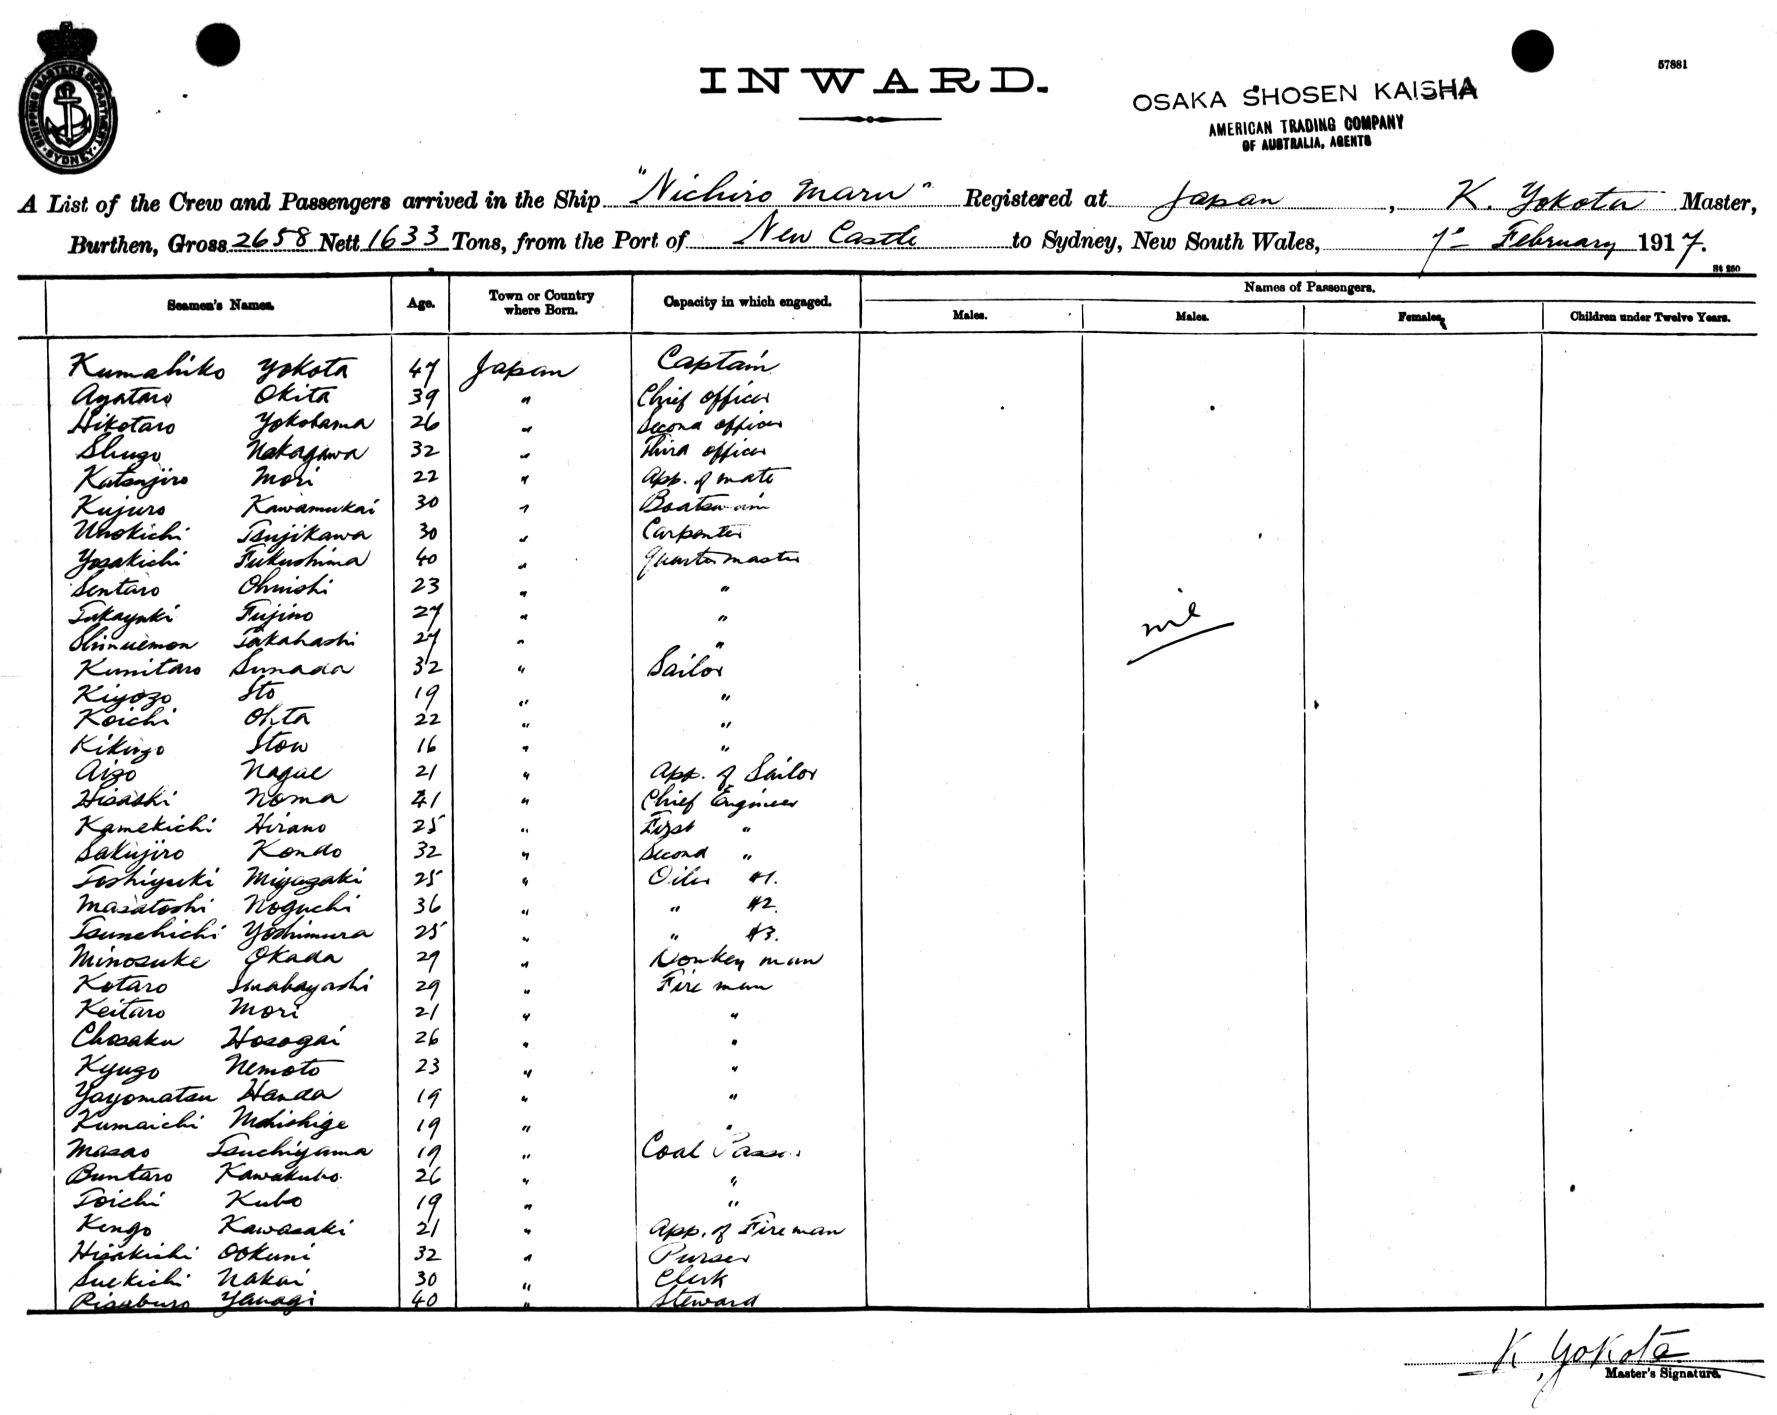 57881
SHIPPING MASTERS DEPARTMENT
SYDNEY
INWARD.
OSAKA SHOSEN KAISHA
AMERICAN TRADING COMPANY
OF AUSTRALIA, AGENTS
A List of the Crew and Passengers arrived in the Ship "Nichiro Maru" Registered at Japan, K. Yokota Master,
Burthen, Gross 2658 Nett 1633 Tons, from the Port of New Castle to Sydney, New South Wales, 1st February 1917.
St 250
Seamen's Names. Age. Town or Country where Born. Capacity in which engaged. Names of Passengers.
Males. Males. Females. Children under Twelve Years.
Kumahiko Yokota 47 Japan Captain
Ayataro Okita 39 " Chief officer
Hikotaro Yokohama 26 " Second officer
Shugo Nakagawa 32 " Third officer
Katsujiro Mori 22 " App. of mate
Kujuro Kawamukai 30 " Boatswain
Unokichi Tsujikawa 30 " Carpenter
Yosakichi Fukushima 40 " Quartermaster
Sentaro Ohnishi 23 " "
Takayuki Fujino 27 " "
Shinuemon Takahashi 27 " "
nil
Kunitaro Sunada 32 " Sailor
Kiyozo Ito 19 " "
Koichi Ohta 22 " "
Kikuzo Itow 16 " "
Aizo Nagae 21 " App. of Sailor
Hisashi Noma 41 " Chief Engineer
Kamekichi Hirano 25 " First "
Sakujiro Kondo 32 " Second "
Toshiyuki Miyazaki 25 " Oiler #1.
Masatoshi Noguchi 36 " " #2.
Tsunehichi Yoshimura 25 " " #3.
Minosuke Okada 29 " Donkey man
Kotaro Imabayashi 29 " Fire man
Keitaro Mori 21 " "
Chosaku Hosogai 26 " "
Kyugo Nemoto 23 " "
Yayomatsu Handa 19 " "
Kumaichi Morishige 19 " "
Masao Tsuchiyama 19 " Coal Passer
Buntaro Kawakubo 26 " "
Toichi Kubo 19 " "
Kengo Kawasaki 21 " App. of Fireman
Hisakichi Ookuni 32 " Purser
Suekichi Nakai 30 " Clerk
Risaburo Yanagi 40 " Steward
K. Yokota
Master's Signature.